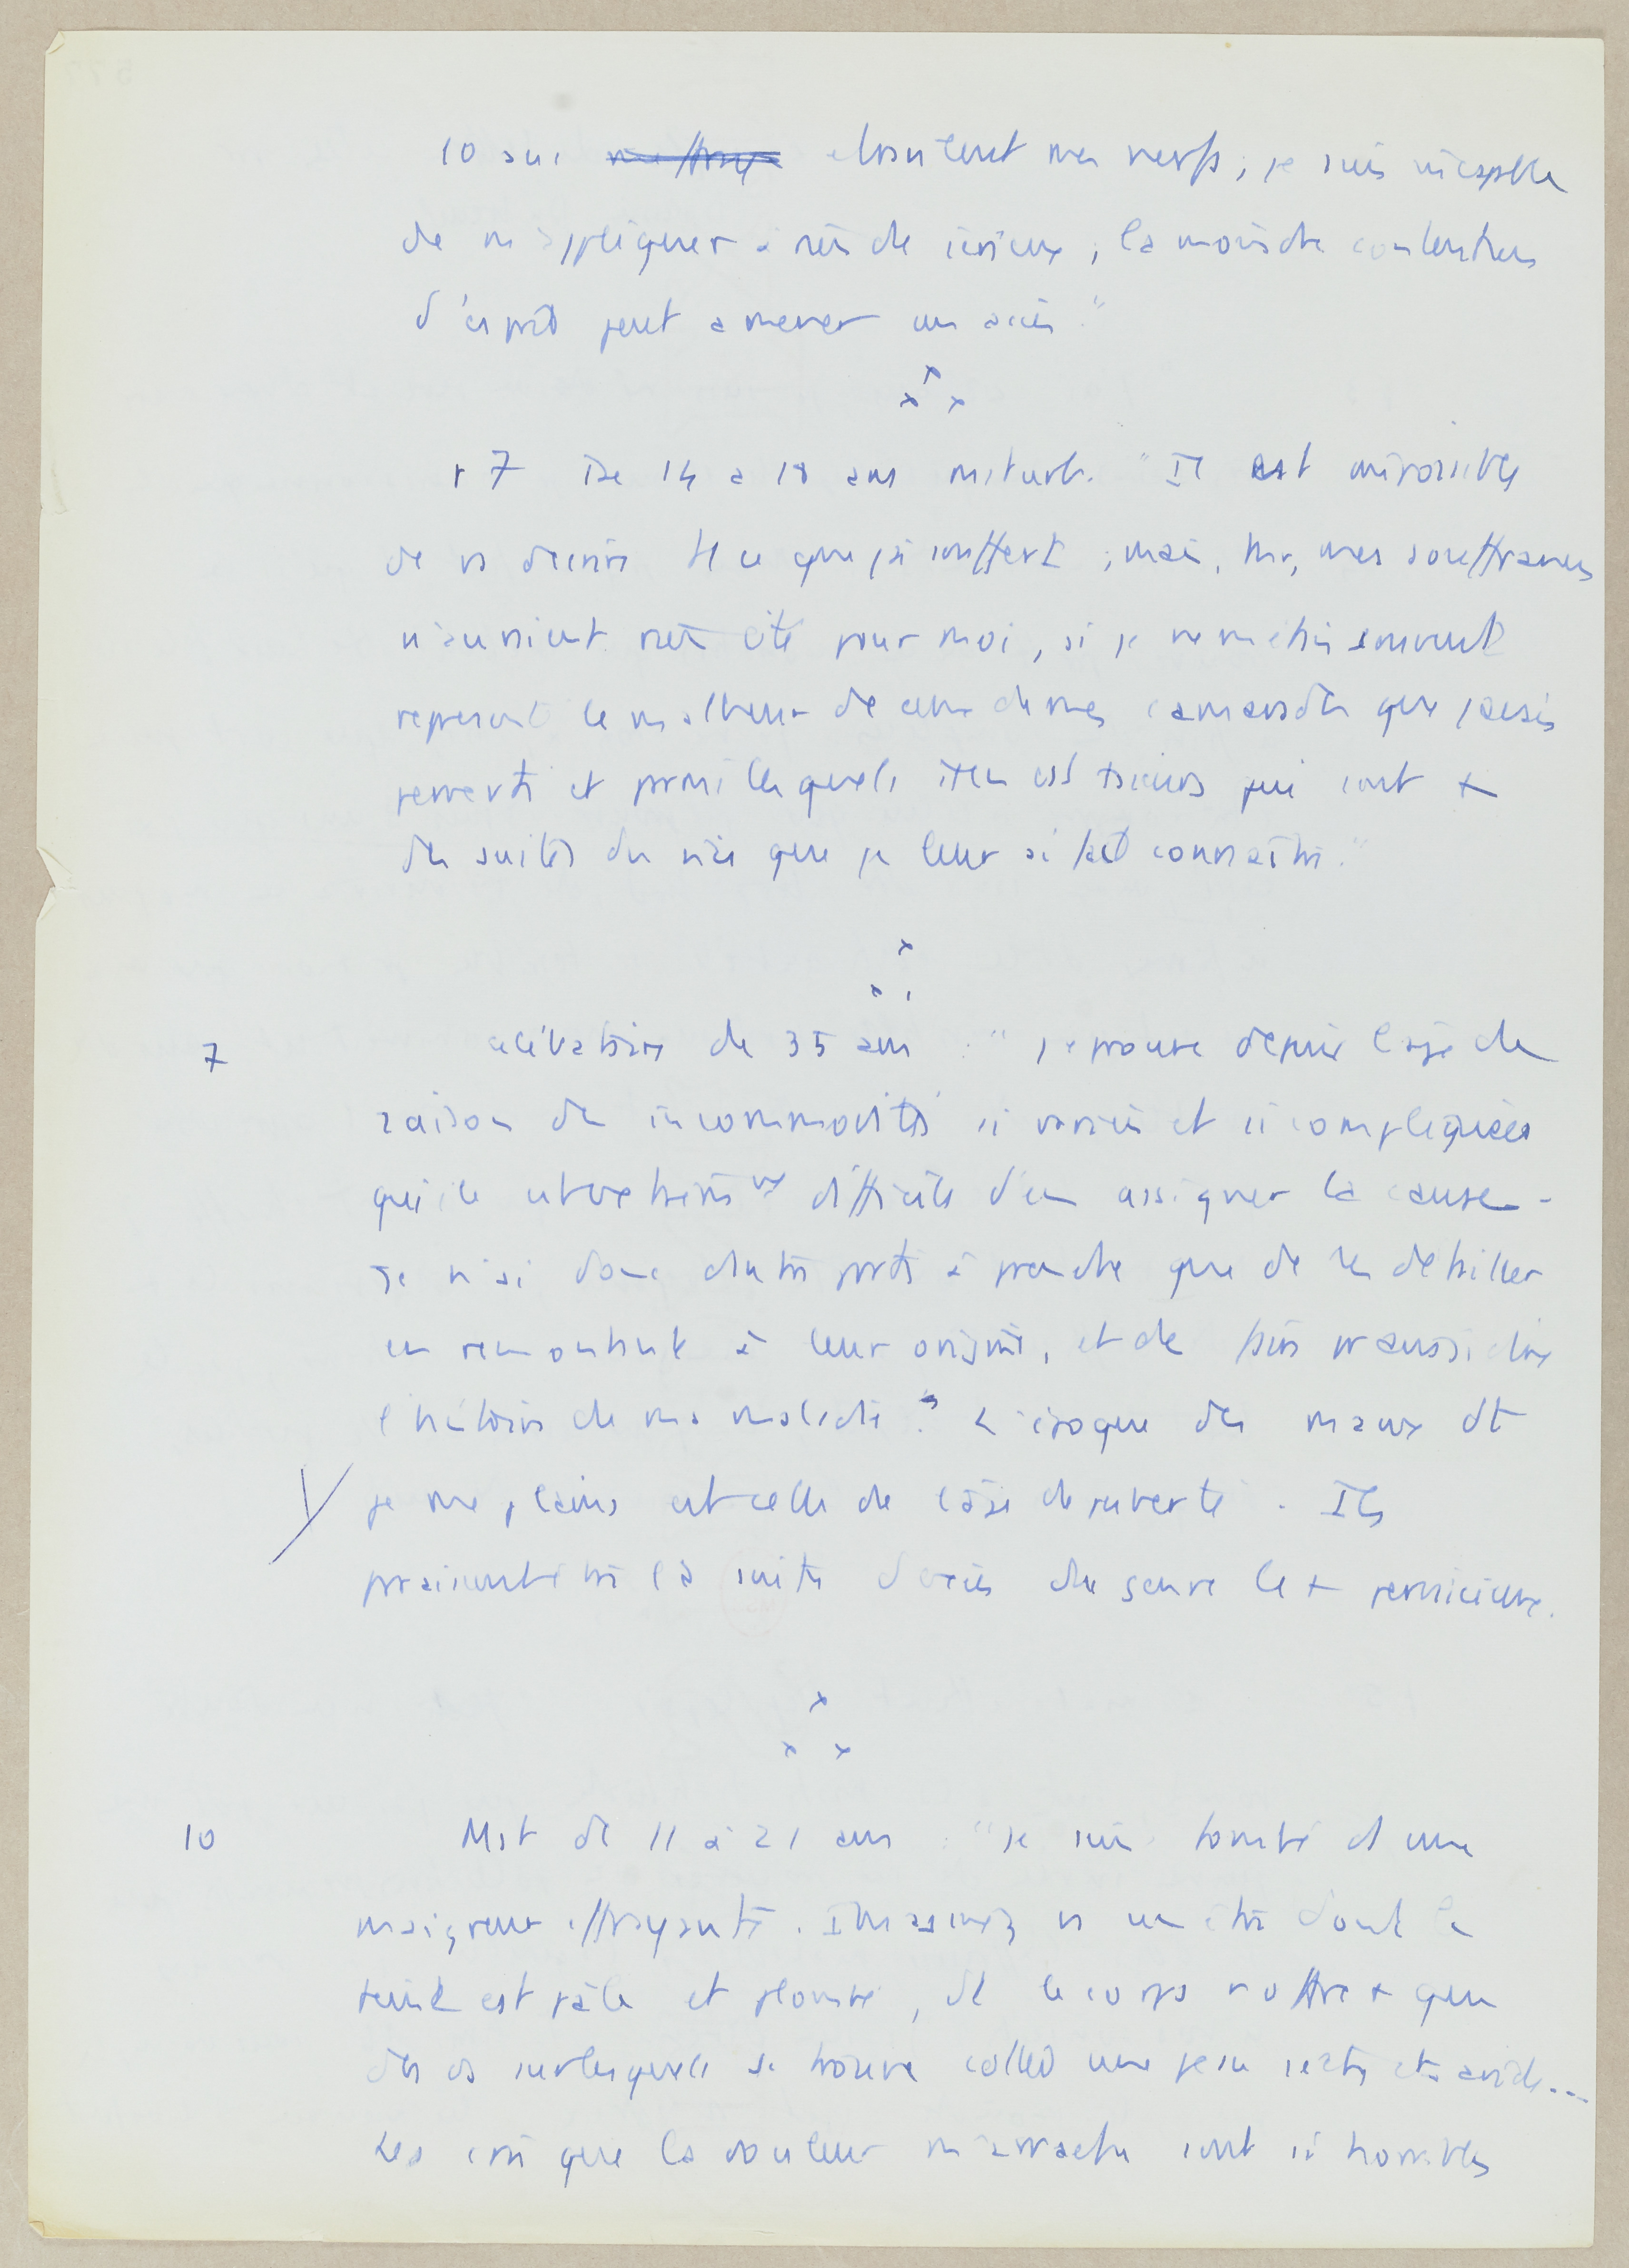 10 ans ébranlent mes nerfs, je suis incapable
de m'appliquer à rien de sérieux, la moindre contention
d'esprit peut amener un accès"
x x x
r 7 De 14 à 18 ans "Il est impossible
de vs décrire ce que j'ai souffert, mais, mes souffrances
n'auraient rien été pour moi, si je ne m'étais souvent
représenté le malheur de ceux de mes camarades que j'avais
pervertis et parmi lesquels il en est qui sont +
des suites du vice que je leur ai fait connaître."
x x x
7 célibataire de 35 ans : "j'éprouve depuis l'âge de
raison des incommodités si variées et si compliquées
qu'il est difficile d'en assigner la cause -
Je n'ai donc d'autre parti à prendre que de les détailler
en remontant à leur origine, et de faire pr ainsi dire
l'histoire de ma maladie." L'époque des maux dt
je me plains est celle de l'âge de puberté. Ils
paraissent être la suite d'excès du genre le + pernicieux.
x x x
10 Mst de 11 à 21 ans : "je suis tombé ds une
maigreur effrayante. Imaginez vs un être dont le
teint est pâle et plombé, dt le corps n'offre + que
des os sur lesquels se trouve collée une peau sèche et aride...
Les cris que la douleur m'arrache sont si horribles